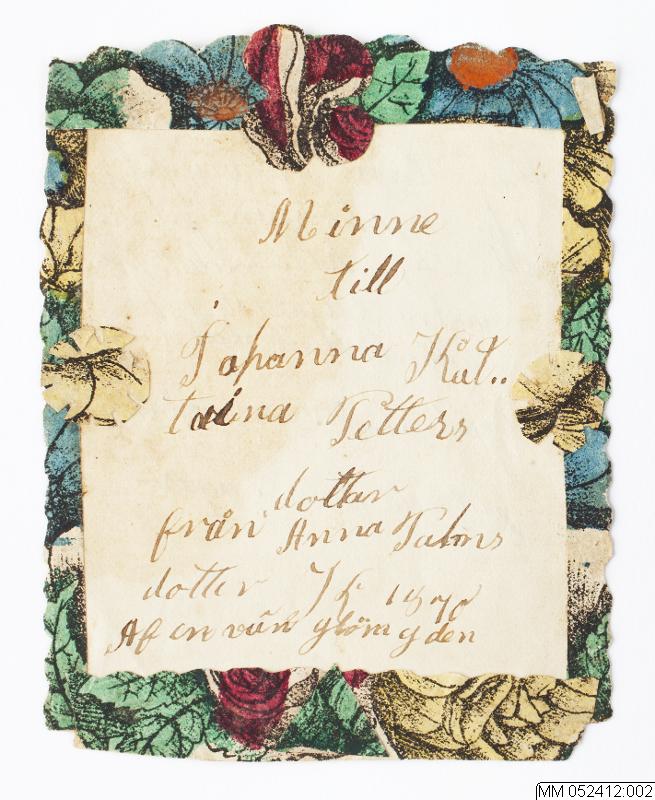 Minne
till
Johanna Kål..
taina Petters
dottar
från Anna Palms
dotter
Af en vän glöm g den
MM 052412:002